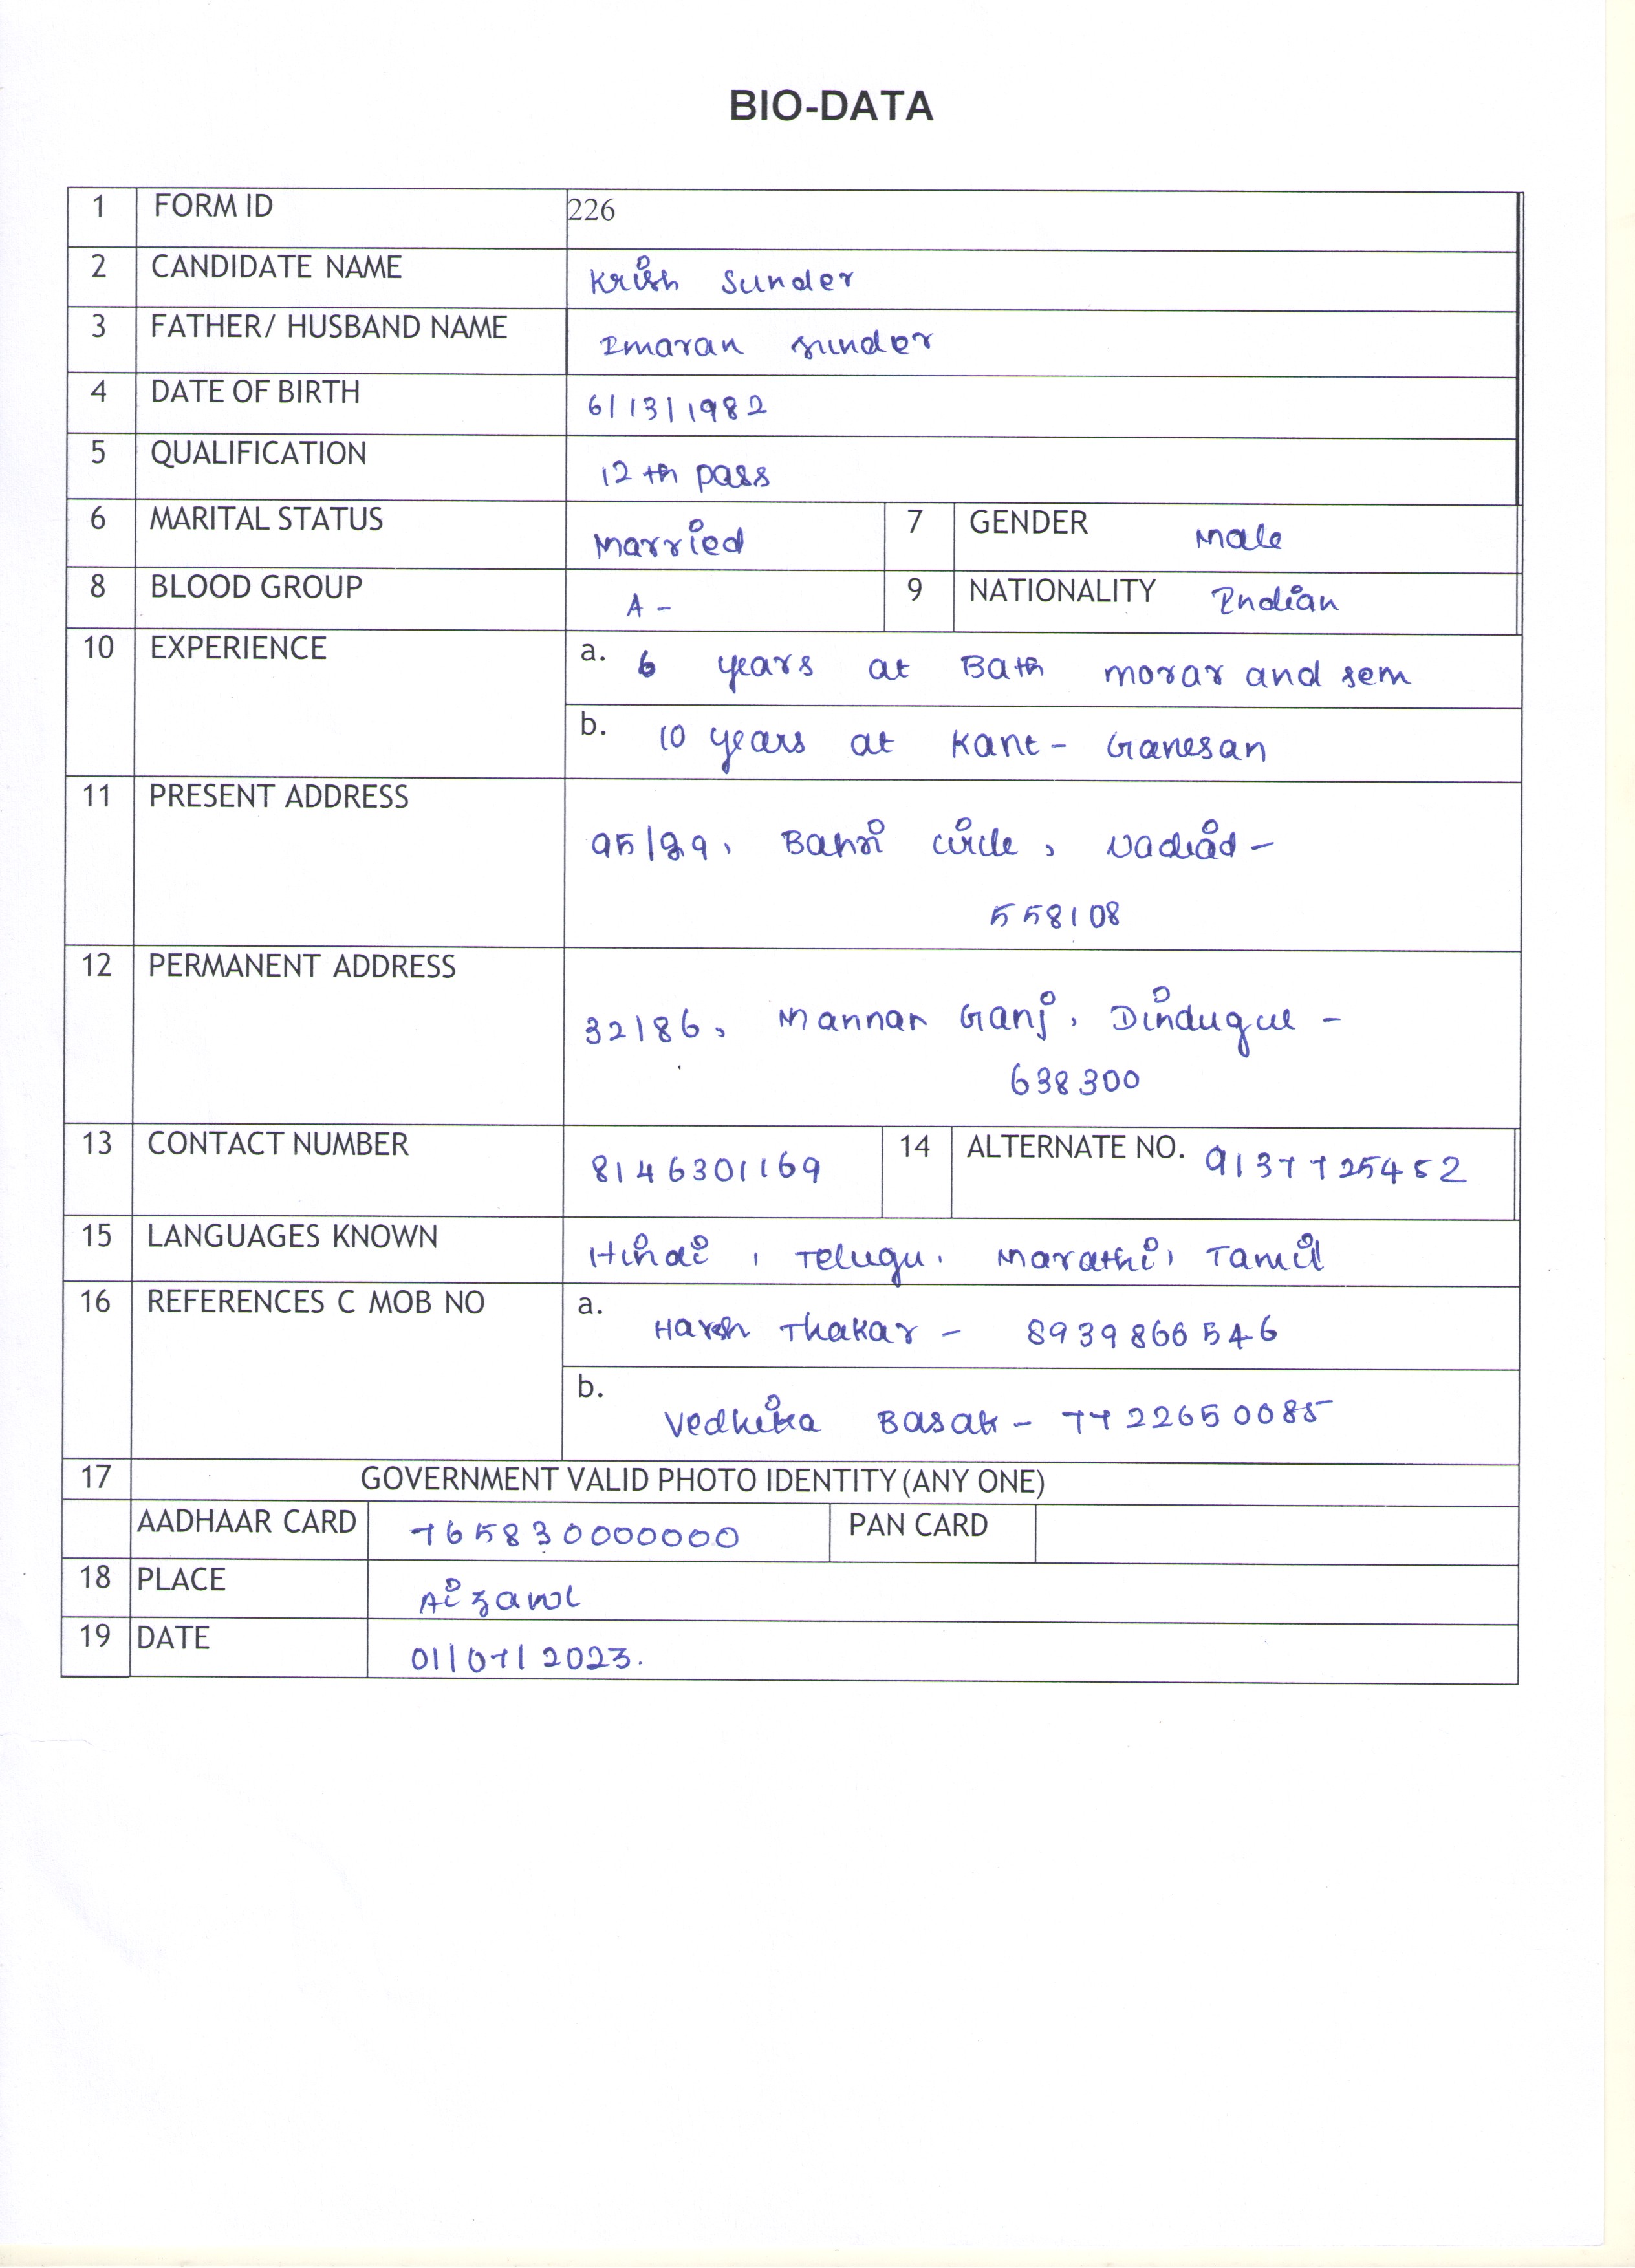 BIO-DATA
1 FORM ID 226
2 CANDIDATE NAME Krish Sunder
3 FATHER/ HUSBAND NAME Imaran Sunder
4 DATE OF BIRTH 6/13/1982
5 QUALIFICATION 12th pass
6 MARITAL STATUS Married 7 GENDER Male
8 BLOOD GROUP A- 9 NATIONALITY Indian
10 EXPERIENCE a. 6 years at Bath morar and sem
b. 10 years at Kant - Ganesan
11 PRESENT ADDRESS
95/29, Bahri circle, Nadiad -
558108
12 PERMANENT ADDRESS
32186, Mannan Ganj, Dindugul -
638300
13 CONTACT NUMBER 8146301169 14 ALTERNATE NO. 9137725452
15 LANGUAGES KNOWN Hindi, Telugu, Marathi, Tamil
16 REFERENCES C MOB NO a. Harsh Thakar - 8939866546
b. Vedhika Basak - 7722650085
17 GOVERNMENT VALID PHOTO IDENTITY (ANY ONE)
AADHAAR CARD 765830000000 PAN CARD
18 PLACE Aizawl
19 DATE 01/07/2023.